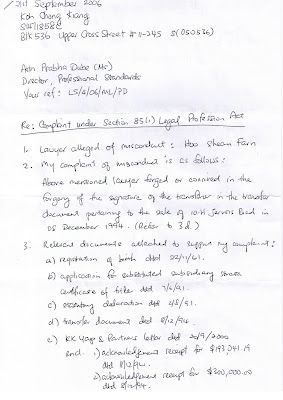 21st September 2006
Koh Chong Xiang
Blk 536 Upper Cross Street #11-245 S(050536)
Attn Prabha Dube (Ms)
Director, Professional Standards
Your ref: LS/4/06/ML/PD
Re: Complaint under Section 85(1) Legal Profession Act
1. Lawyer alleged of misconduct: Hoo Sheau Farn
2. My complaint of misconduct is as follows:
Above mentioned lawyer forged or connived in the
forgery of the signature of the transferor in the transfer
document pertaining to the sale of 10-H Jervois Road in
08 December 1994. (Refer to 3d.)
3. Relevant documents attached to support my complaint:
a) registration of birth dtd 22/11/61.
b) application for substituted subsidiary strata
certificate of title dtd 7/6/91.
c) statutory declaration dtd 4/5/91.
d) transfer document dtd 8/12/94.
e) KK Yap & Partners letter dtd 20/9/2000
encl. 1) acknowledgement receipt for $193,041.19
dtd 8/12/94.
2) acknowledgement receipt for $300,000.00
dtd 8/12/94.